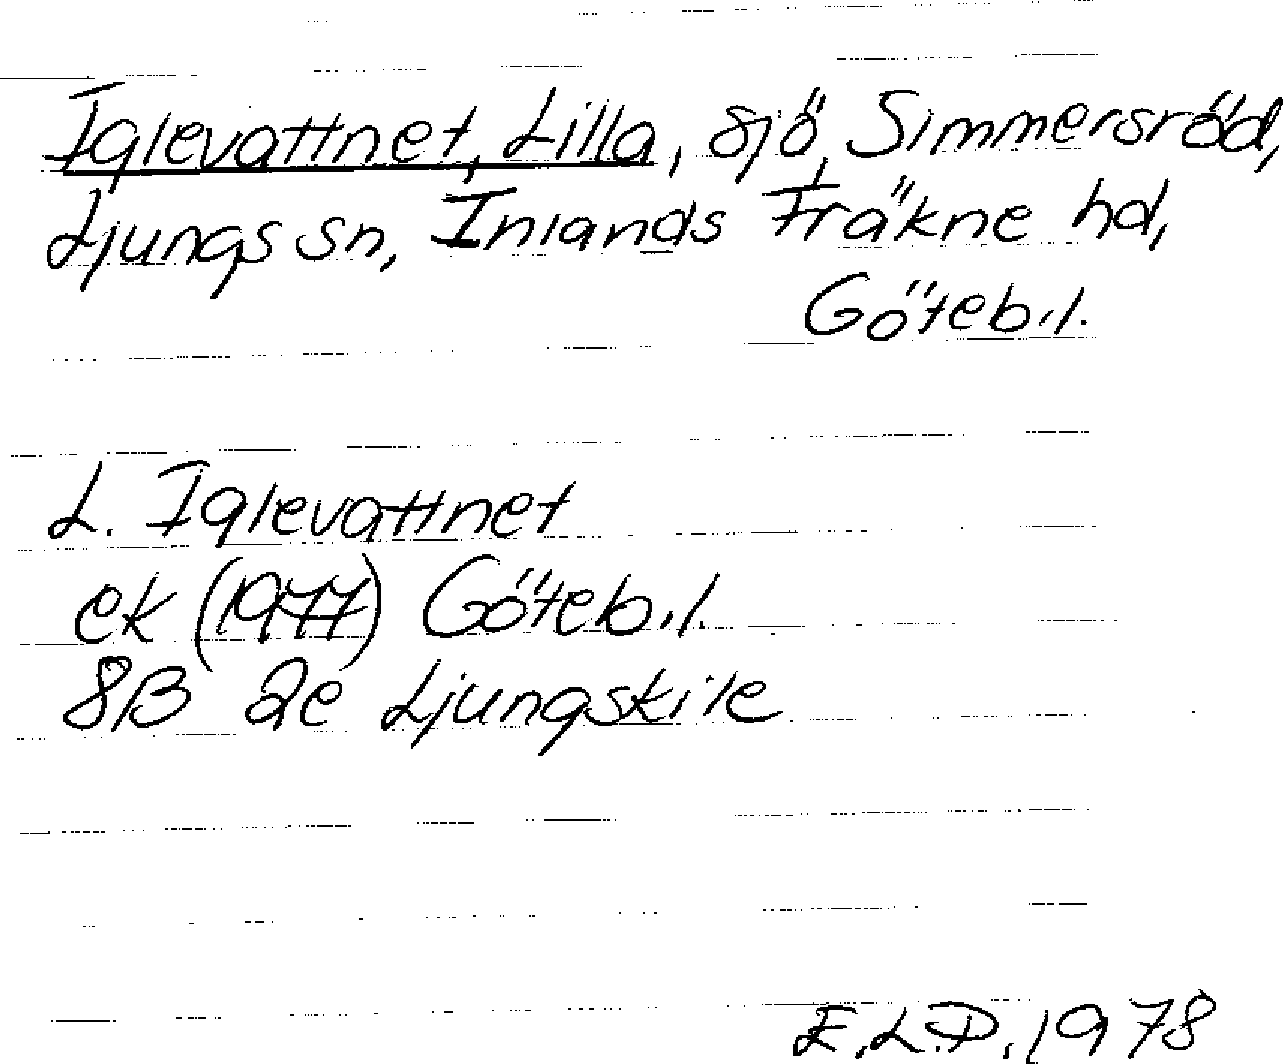 Iglevattnet, Lilla, sjö, Simmersröd,
Ljungs sn, Inlands Fräkne hd,
Göteb.l.
L. Iglevattnet
ek (1977) Göteb.l.
8B 2e Ljungskile
E.L.D. 1978